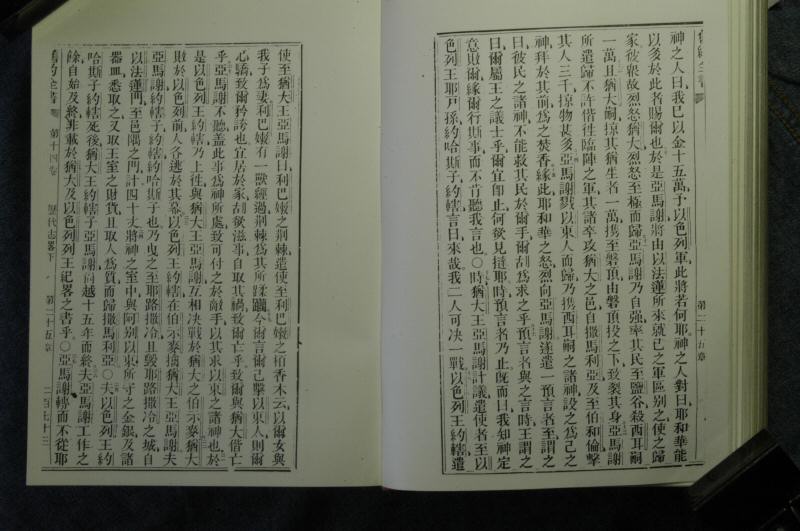 神之人曰我已以金十五萬予以色列軍此將若何耶神之人對曰耶和華能
以多於此者賜爾也於是亞馬謝將由以法蓮所來就己之軍區別之使之歸
家彼眾故烈怒猶大烈怒至極而歸亞馬謝乃自強率其民至鹽谷殺西耳嗣
一萬且猶大嗣掠其猶生者一萬攜至磐頂由磐頂投之下致裂其身亞馬謝
所遣歸不許偕往臨陣之軍其諸卒攻猶大之邑自撒馬利亞及至伯和倫擊
其人三千掠物甚多亞馬謝戮以東人而歸乃攜西耳嗣之諸神設之為己之
神拜於其前為之焚香緣此耶和華之怒烈向亞馬謝遂遣一預言者至謂之
曰彼民之諸神不能救其民於爾手爾胡為求之乎預言者與之言時王謂之
曰爾屬王之議士乎爾宜即止何欲見撻耶時預言者乃止既而曰我知神定
意敗爾緣爾行斯事而不肯聽我言也○時猶大王亞馬謝計議遣使者至以
色列王耶戶孫約哈斯子約轄言曰來哉我二人可決一戰以色列王約轄遣
第二十五章
使至猶大王亞馬謝曰利巴嫩之荊棘遣使至利巴嫩之栢香木云以爾女與
我子為妻利巴嫩有一獸經過荊棘為其所蹂躪今爾言爾己擊以東人則爾
心驕致爾矜誇也宜居於家胡欲滋事自取其禍致爾亡乎致爾與猶大偕亡
乎亞馬謝不聽蓋此事為神所處致可付之於敵手以其求以東之諸神也於
是以色列王約轄乃上往與猶大王亞馬謝互相決戰於猶大之伯示麥猶大
敗於以色列前人各逃於其幕以色列王約轄在伯示麥擒猶大王亞馬謝夫
亞馬謝約轄子約轄約哈斯子也乃曳之至耶路撒冷且毀耶路撒冷之城自
以法蓮門至邑隅之門計四十丈將神之室中與阿別以東所守之金銀及諸
器皿悉取之又取王室之財貨且取人為質而歸撒馬利亞○夫以色列王約
哈斯子約轄死後猶大王約轄子亞馬謝尚越十五年而終夫亞馬謝工作之
餘自始及終非載於猶大及以色列列王紀畧之書乎○亞馬謝轉而不從耶
舊約全書 第十四卷 歷代志畧下 第二十五章 二百七十三